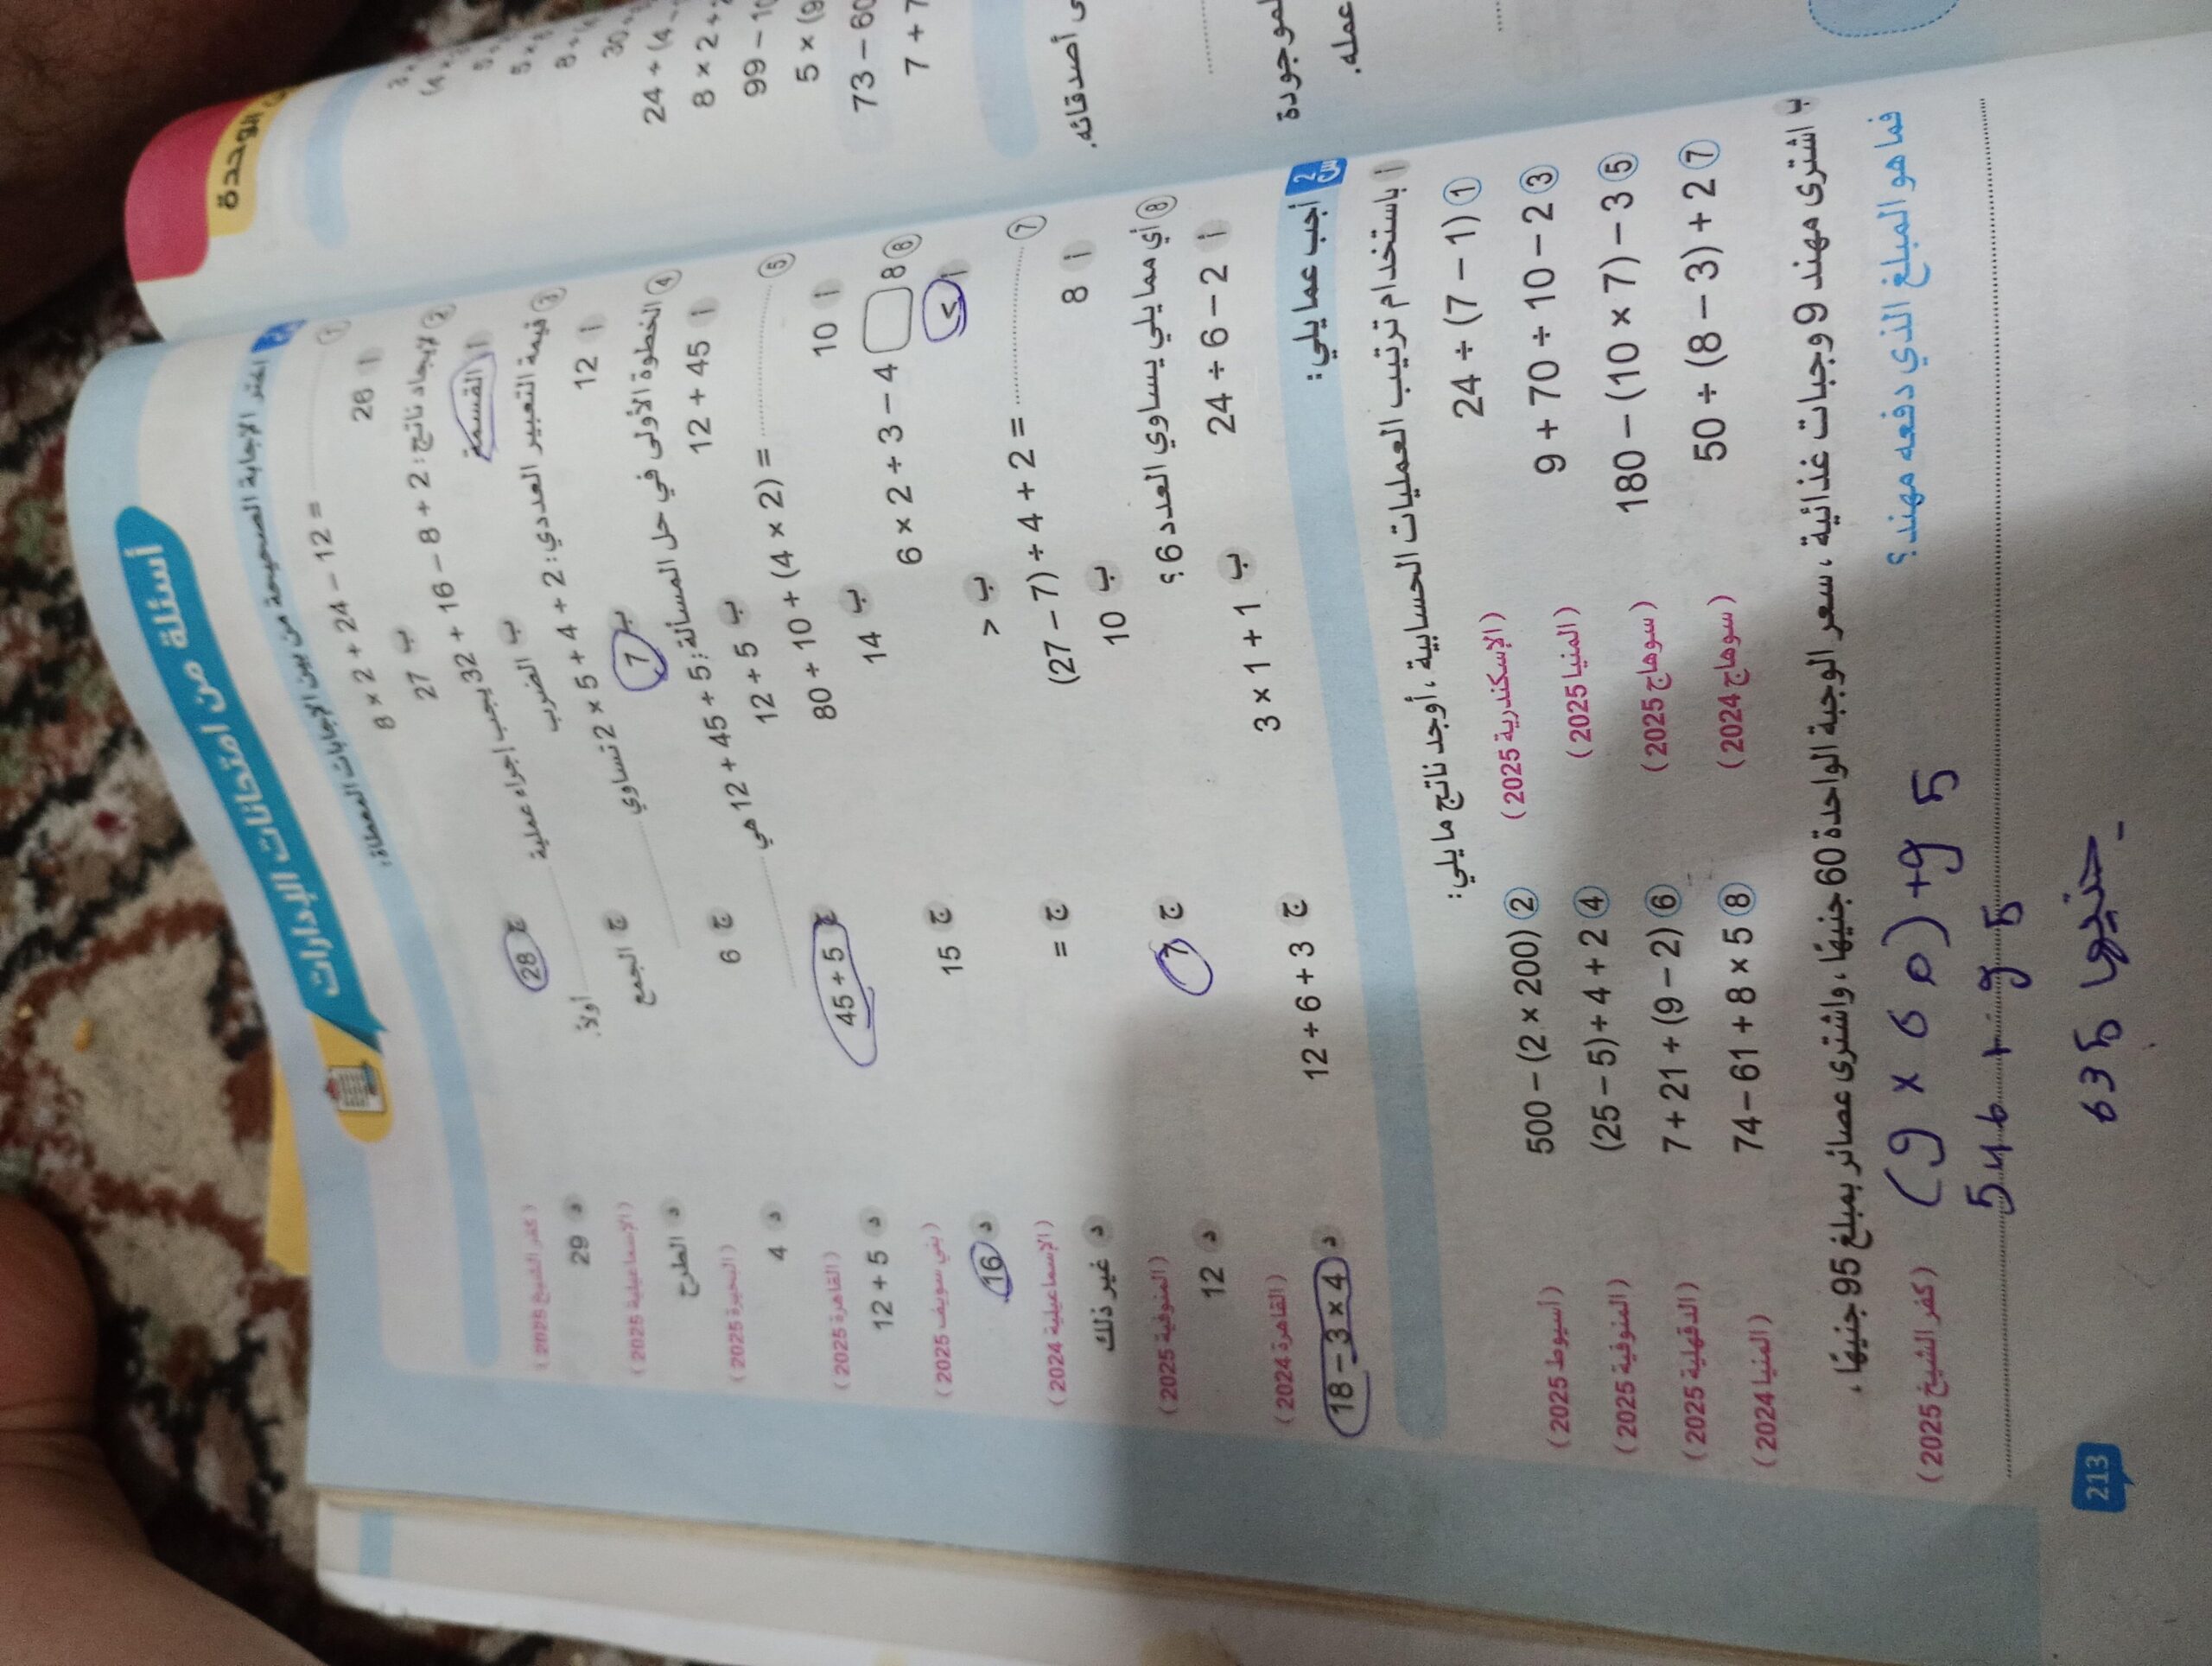 أسئلة من امتحانات الإدارات
اختر الإجابة الصحيحة من بين الإجابات المعطاة:
1 8 × 2 + 24 − 12 = (كفر الشيخ 2025)
أ 26 ب 27 ج 28 د 29
2 لإيجاد ناتج: 2 + 8 − 16 + 32 يجب إجراء عملية أولاً. (الإسماعيلية 2025)
أ القسمة ب الضرب ج الجمع د الطرح
3 قيمة التعبير العددي: 2 + 4 ÷ 5 × 2 تساوي (البحيرة 2025)
أ 12 ب 7 ج 6 د 4
4 الخطوة الأولى في حل المسألة: 5 ÷ 45 + 12 هي (القاهرة 2025)
أ 12 + 45 ب 12 ÷ 5 ج 45 ÷ 5 د 12 + 5
5 80 ÷ 10 + (4 × 2) = (بني سويف 2025)
أ 10 ب 14 ج 15 د 16
6 6 × 2 ÷ 3 − 4 8 (الإسماعيلية 2024)
أ < ب > ج = د غير ذلك
7 (27 − 7) ÷ 4 + 2 = (المنوفية 2025)
أ 8 ب 10 ج 7 د 12
8 أي مما يلي يساوي العدد 6؟ (القاهرة 2024)
أ 24 ÷ 6 − 2 ب 3 × 1 + 1 ج 12 ÷ 6 + 3 د 18 − 3 × 4
س2 أجب عما يلي:
أ باستخدام ترتيب العمليات الحسابية، أوجد ناتج ما يلي:
1 24 ÷ (7 − 1) (الإسكندرية 2025) 2 500 − (2 × 200) (أسيوط 2025)
3 9 + 70 ÷ 10 − 2 (المنيا 2025) 4 (25 − 5) ÷ 4 + 2 (المنوفية 2025)
5 180 − (10 × 7) − 3 (سوهاج 2025) 6 7 + 21 ÷ (9 − 2) (الدقهلية 2025)
7 50 ÷ (8 − 3) + 2 (سوهاج 2024) 8 74 − 61 + 8 × 5 (المنيا 2024)
ب اشترى مهند 9 وجبات غذائية، سعر الوجبة الواحدة 60 جنيهًا، واشترى عصائر بمبلغ 95 جنيهًا،
فما هو المبلغ الذي دفعه مهند؟ (كفر الشيخ 2025)
(9 × 60) + 95
540 + 95
635 جنيها
213
الوحدة
24 ÷ (4
8 × 2 +
99 − 10
5 × (9
73 − 60
7 + 7
أصدقائه.
الموجودة
عمله.